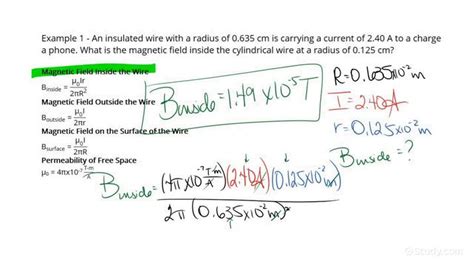 Example 1 - An insulated wire with a radius of 0.635 cm is carrying a current of 2.40 A to a charge
a phone. What is the magnetic field inside the cylindrical wire at a radius of 0.125 cm?
Magnetic Field Inside the Wire
B_inside = μ₀Ir / 2πR²
Magnetic Field Outside the Wire
B_outside = μ₀I / 2πr
Magnetic Field on the Surface of the Wire
B_surface = μ₀I / 2πR
Permeability of Free Space
μ₀ = 4πx10⁻⁷ T·m/A
B_inside = 1.49 x10⁻⁵ T
R = 0.635x10⁻² m
I = 2.40A
r = 0.125x10⁻² m
B_inside = ?
B_inside = (4π x10⁻⁷ T·m/A)(2.40A)(0.125x10⁻² m)
2π(0.635x10⁻² m)²
Study.com